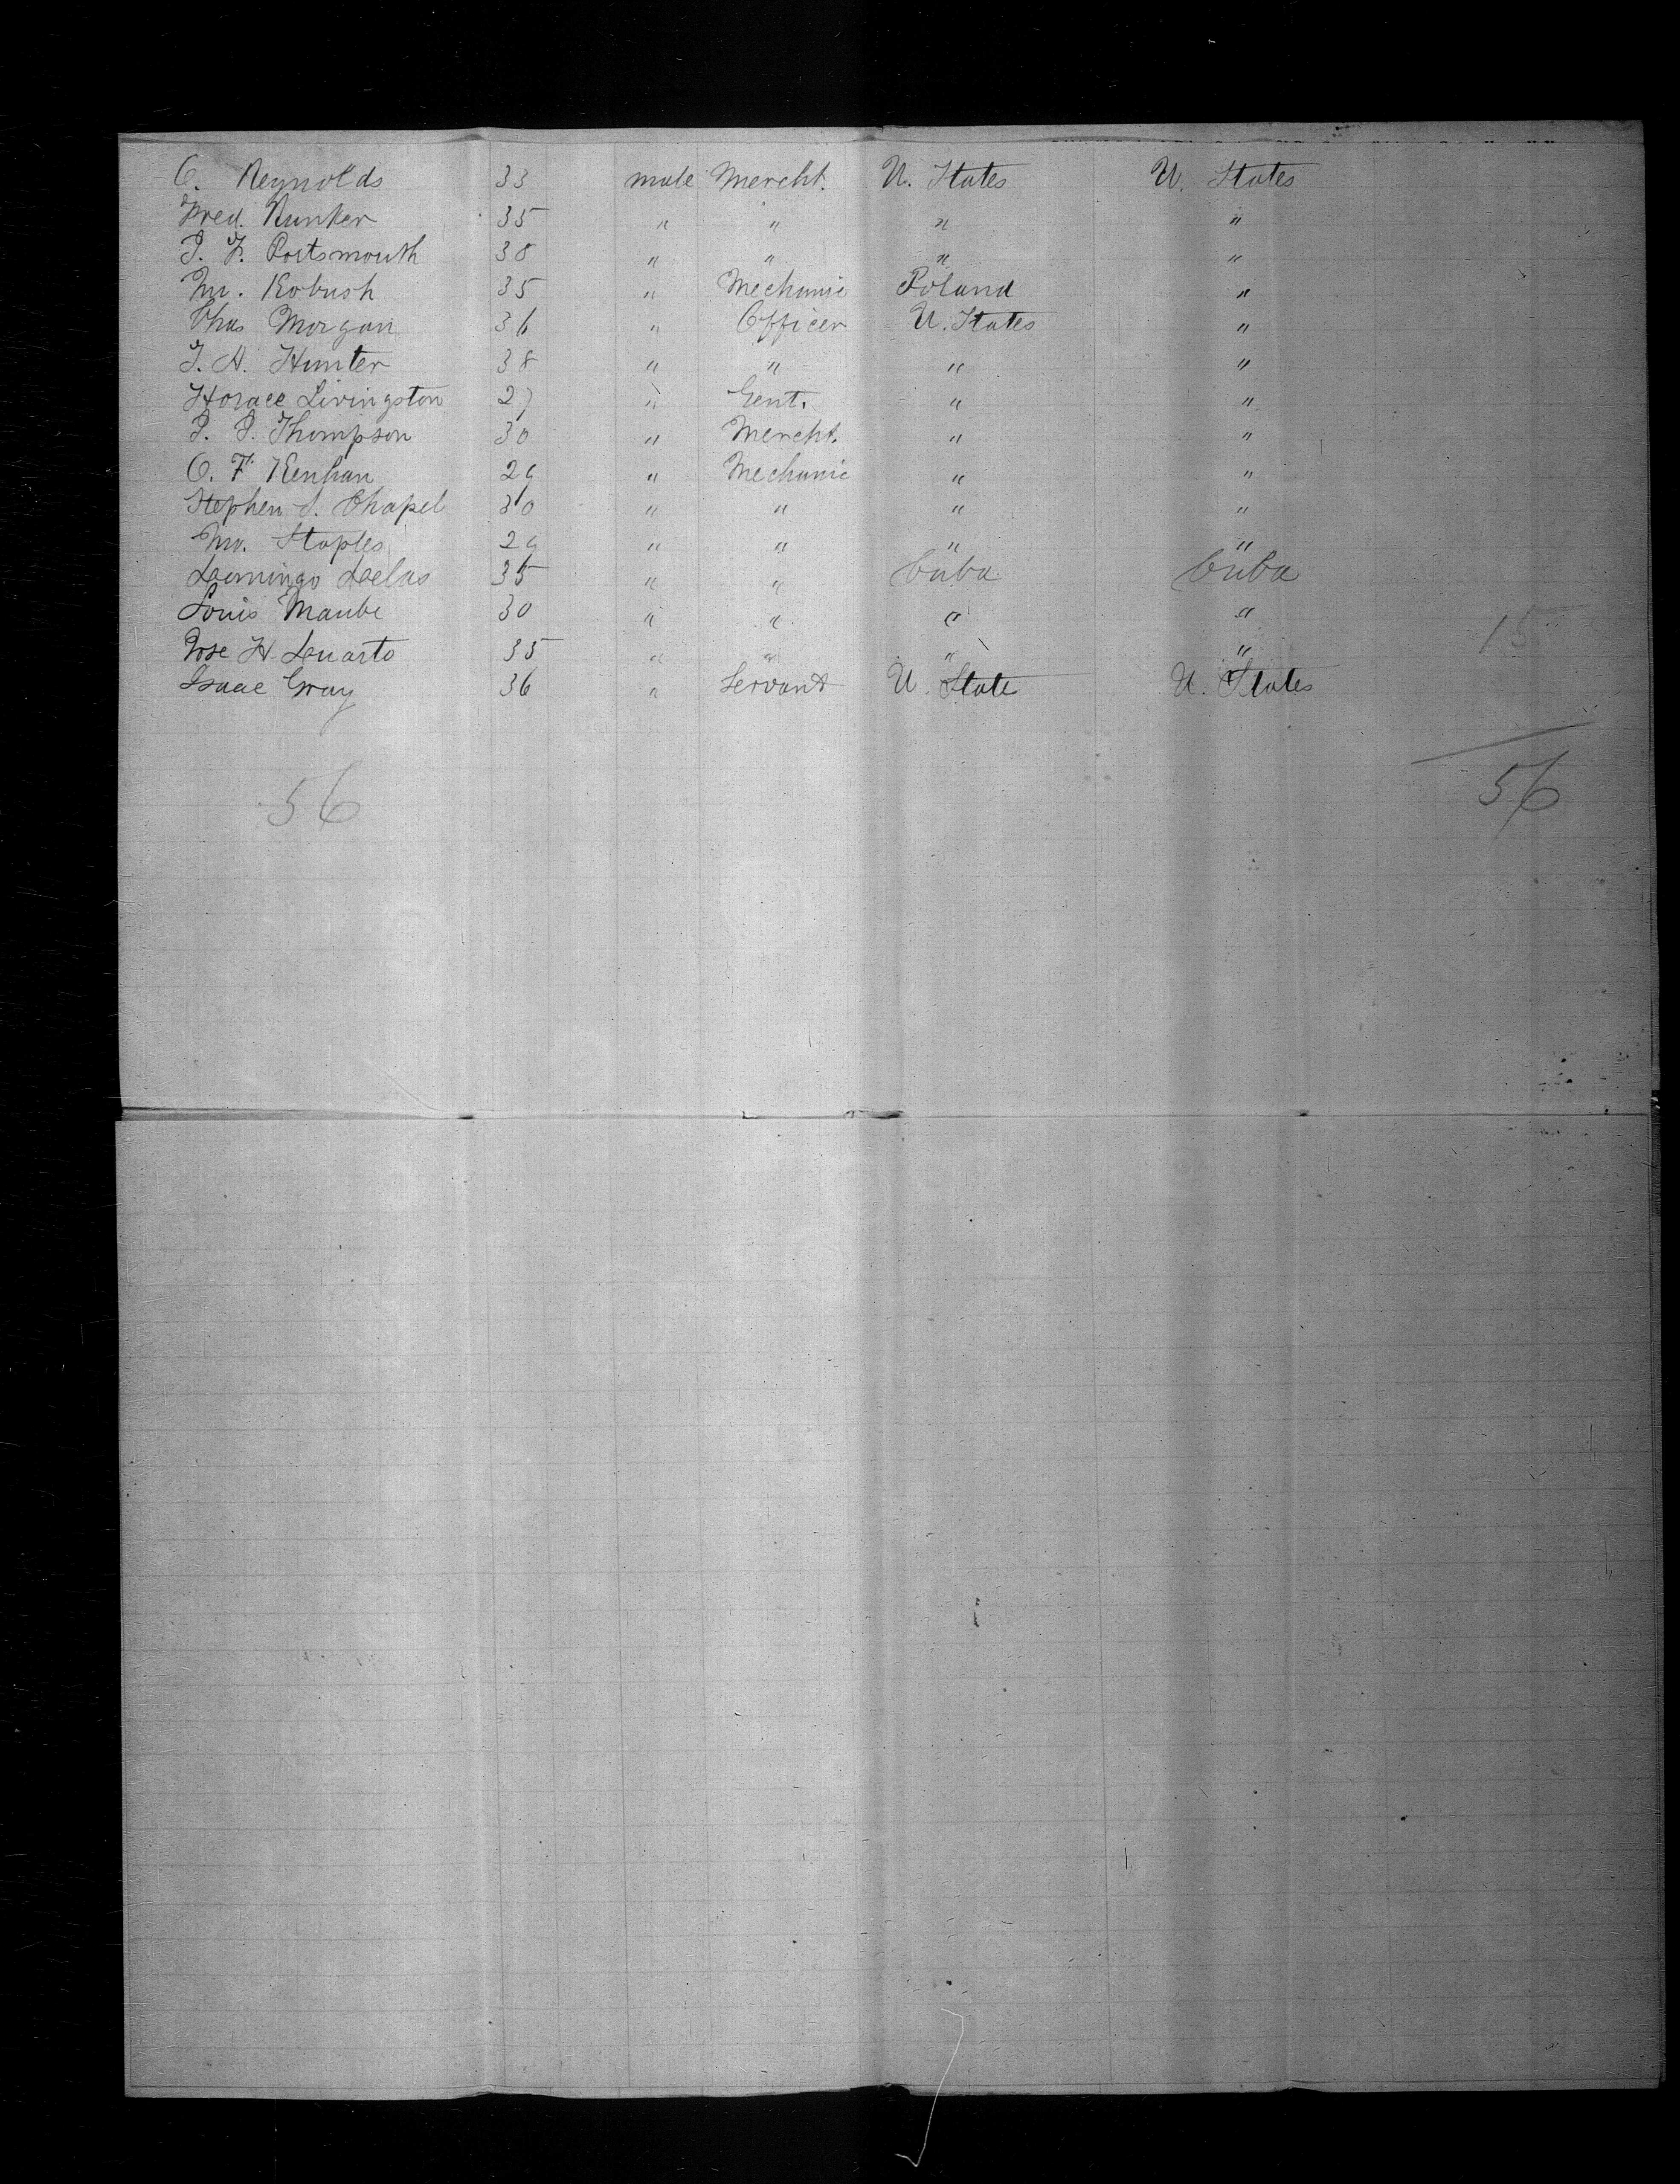 C. Reynolds 33 male Mercht. U. States U. States
Fred. Runker 35 " " " "
J. F. Portsmouth 38 " " " "
Mr. Kobush 35 " Mechanic Poland "
Chas Morgan 36 " Officer U. States "
J. H. Hunter 38 " " " "
Horace Livingston 27 " Gent. " "
J. J. Thompson 30 " Mercht. " "
C. F. Kenhan 29 " Mechanic " "
Stephen S. Chapel 30 " " " "
Mr. Staples 29 " " " "
Domingo Delas 35 " " Cuba Cuba
Louis Maube 30 " " " "
15
Jose H. Duarto 35 " " " "
Isaac Gray 36 " Servant U. State U. States
56 56